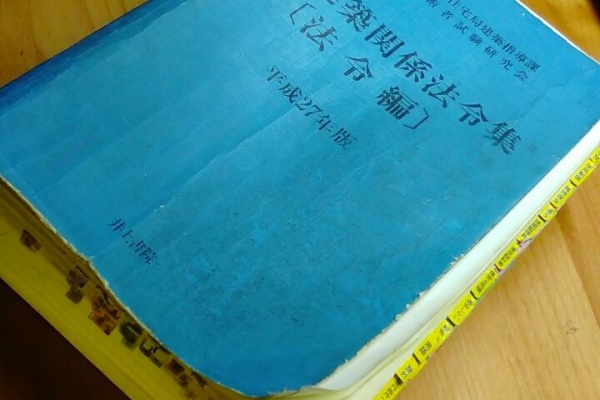 住宅局建築指導課
術者試験研究会
築関係法令集
〔法令編〕
平成27年版
井上書院